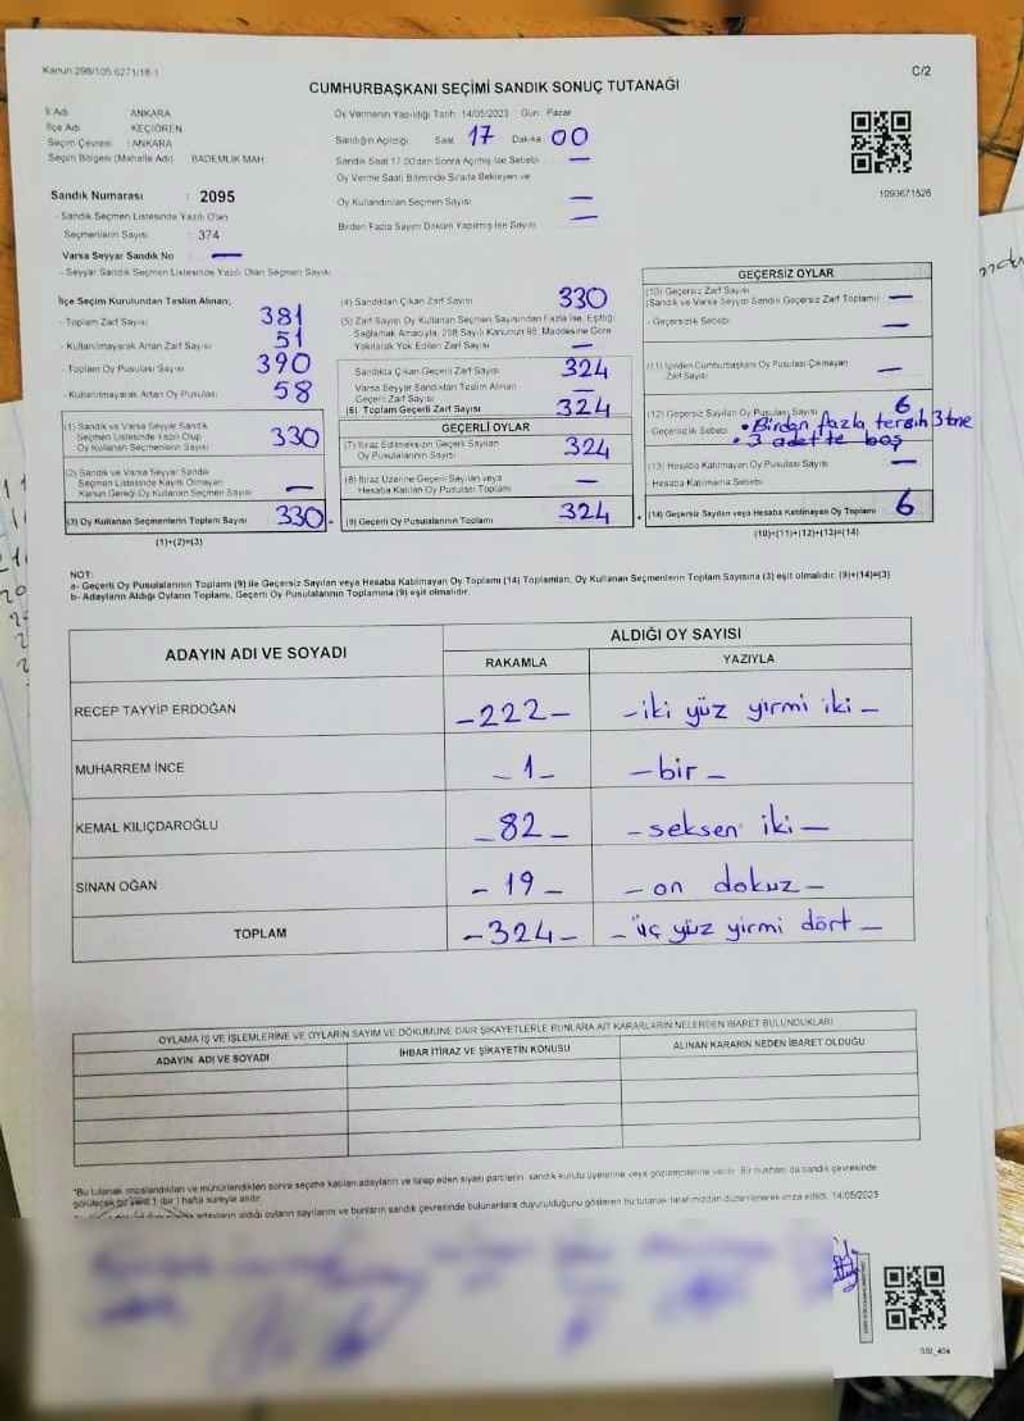 Kanun 298/105 6271/18-1
C/2
CUMHURBAŞKANI SEÇİMİ SANDIK SONUÇ TUTANAĞI
İl Adı ANKARA
İlçe Adı KEÇİÖREN
Seçim Çevresi : ANKARA
Seçim Bölgesi (Mahalle Adı) BADEMLİK MAH.
Oy Vermenin Yapıldığı Tarih: 14/05/2023 Gün: Pazar
Sandığın Açılışı Saat 17 Dakika 00
Sandık Saat 17.00'den Sonra Açılmış İse Sebebi —
Oy Verme Saati Bitiminde Sırada Bekleyen ve
Oy Kullandırılan Seçmen Sayısı —
Birden Fazla Sayım Döküm Yapılmış İse Sayısı —
1093671526
Sandık Numarası : 2095
- Sandık Seçmen Listesinde Yazılı Olan
Seçmenlerin Sayısı : 374
Varsa Seyyar Sandık No —
- Seyyar Sandık Seçmen Listesinde Yazılı Olan Seçmen Sayısı
İlçe Seçim Kurulundan Teslim Alınan;
- Toplam Zarf Sayısı 381
- Kullanılmayarak Artan Zarf Sayısı 51
- Toplam Oy Pusulası Sayısı 390
- Kullanılmayarak Artan Oy Pusulası 58
(1) Sandık ve Varsa Seyyar Sandık
Seçmen Listesinde Yazılı Olup
Oy Kullanan Seçmenlerin Sayısı 330
(2) Sandık ve Varsa Seyyar Sandık
Seçmen Listesinde Kayıtlı Olmayan
Kanun Gereği Oy Kullanan Seçmen Sayısı —
(3) Oy Kullanan Seçmenlerin Toplam Sayısı 330
(1)+(2)=(3)
(4) Sandıktan Çıkan Zarf Sayısı 330
(5) Zarf Sayısı Oy Kullanan Seçmen Sayısından Fazla İse, Eşitliği
Sağlamak Amacıyla, 298 Sayılı Kanunun 98. Maddesine Göre
Yakılarak Yok Edilen Zarf Sayısı —
Sandıkta Çıkan Geçerli Zarf Sayısı 324
Varsa Seyyar Sandıktan Teslim Alınan
Geçerli Zarf Sayısı —
(6) Toplam Geçerli Zarf Sayısı 324
GEÇERLİ OYLAR
(7) İtiraz Edilmeksizin Geçerli Sayılan
Oy Pusulalarının Sayısı 324
(8) İtiraz Üzerine Geçerli Sayılan veya
Hesaba Katılan Oy Pusulası Toplamı —
(9) Geçerli Oy Pusulalarının Toplamı 324
GEÇERSİZ OYLAR
(10) Geçersiz Zarf Sayısı
(Sandık ve Varsa Seyyar Sandık Geçersiz Zarf Toplamı) —
- Geçersizlik Sebebi —
(11) İçinden Cumhurbaşkanı Oy Pusulası Çıkmayan
Zarf Sayısı —
(12) Geçersiz Sayılan Oy Pusulası Sayısı 6
Geçersizlik Sebebi • Birden fazla tercih 3 tne
• 3 adet'te boş
(13) Hesaba Katılmayan Oy Pusulası Sayısı —
Hesaba Katılmama Sebebi
(14) Geçersiz Sayılan veya Hesaba Katılmayan Oy Toplamı 6
(10)+(11)+(12)+(13)=(14)
NOT:
a- Geçerli Oy Pusulalarının Toplamı (9) ile Geçersiz Sayılan veya Hesaba Katılmayan Oy Toplamı (14) Toplamları, Oy Kullanan Seçmenlerin Toplam Sayısına (3) eşit olmalıdır. (9)+(14)=(3)
b- Adayların Aldığı Oyların Toplamı, Geçerli Oy Pusulalarının Toplamına (9) eşit olmalıdır.
ADAYIN ADI VE SOYADI
ALDIĞI OY SAYISI
RAKAMLA YAZIYLA
RECEP TAYYİP ERDOĞAN -222- -iki yüz yirmi iki-
MUHARREM İNCE -1- -bir-
KEMAL KILIÇDAROĞLU -82- -seksen iki-
SİNAN OĞAN -19- -on dokuz-
TOPLAM -324- -üç yüz yirmi dört-
OYLAMA İŞ VE İŞLEMLERİNE VE OYLARIN SAYIM VE DÖKÜMÜNE DAİR ŞİKAYETLERLE BUNLARA AİT KARARLARIN NELERDEN İBARET BULUNDUKLARI
ADAYIN ADI VE SOYADI İHBAR İTİRAZ VE ŞİKAYETİN KONUSU ALINAN KARARIN NEDEN İBARET OLDUĞU
"Bu tutanak imzalandıktan ve mühürlendikten sonra seçime katılan adayların ve talep eden siyasi partilerin, sandık kurulu üyelerine veya gözlemcilerine verilir. Bir nüshası da sandık çevresinde
görülecek bir yere 1 (bir) hafta süreyle asılır.
adayların aldığı oyların sayılarını ve bunların sandık çevresinde bulunanlara duyurulduğunu gösteren bu tutanak tarafımızdan düzenlenerek imza edildi. 14/05/2023